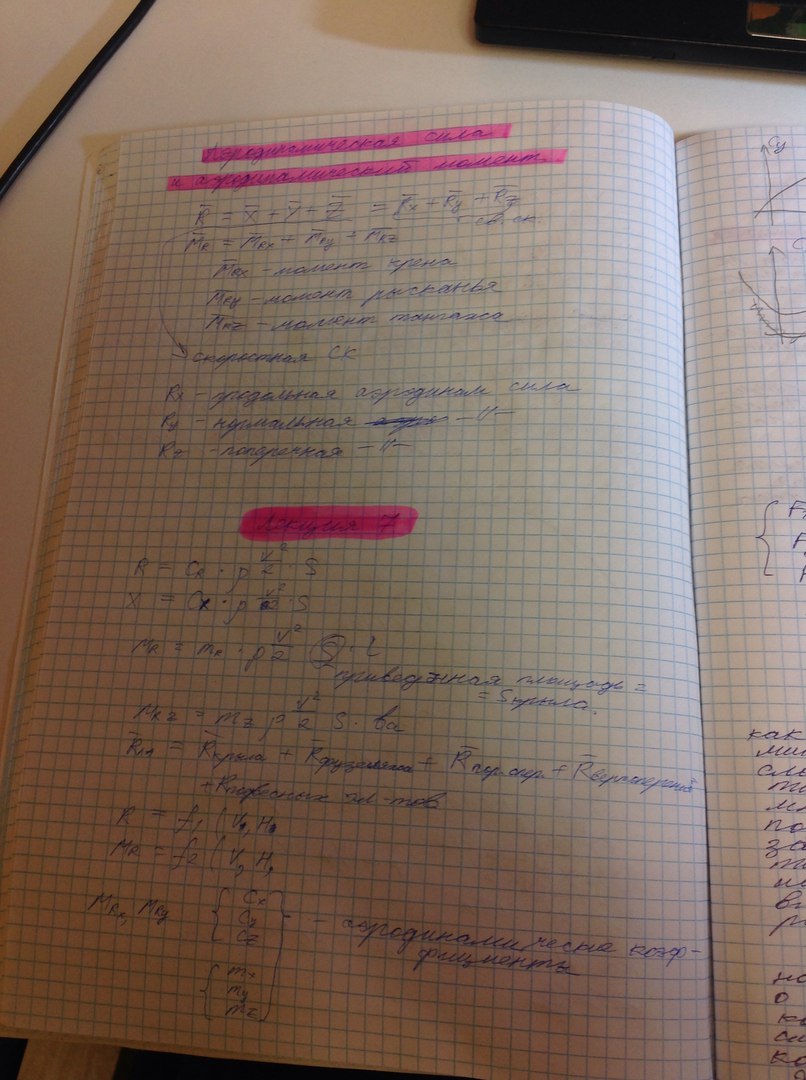 Аэродинамическая сила
и аэродинамический момент.
R̄ = X̄ + Ȳ + Z̄ = R̄x + R̄y + R̄z
св. ск.
M̄R = M̄Rx + M̄Ry + M̄Rz
M̄Rx - момент крена
M̄Ry - момент рысканья
M̄Rz - момент тангажа
скоростная СК
Rx - продольная аэродинам сила
Ry - нормальная -//-
Rz - поперечная -//-
Лекция 7
R = CR · ρ V²/2 · S
X = Cx · ρ V²/2 · S
MR = mR · ρ V²/2 S · L
приведённая площадь =
= S крыла.
MRz = mz ρ V²/2 S · ba
R̄ЛА = R̄крыла + R̄фузеляжа + R̄гор.опер. + R̄верт оперения
+ Rподвесных эл-тов
R = f1 (V, H,
MR = f2 (V, H,
MRx, MRy
{ Cx
Cy
Cz
- аэродинамические коэф-
фициенты
{ mx
my
mz
Cy
как